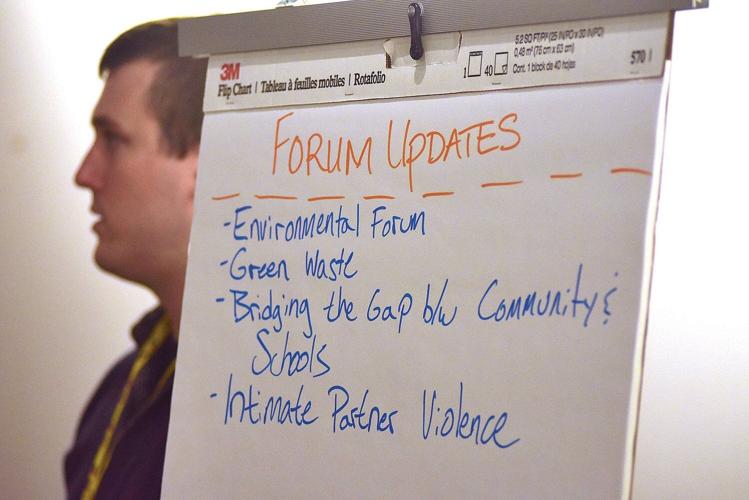 3M
Flip Chart | Tableau à feuilles mobiles | Rotafolio
1 40
5.2 SQ FT/PI² (25 IN/PO x 30 IN/PO)
0,48 m² (76 cm x 63 cm)
Cont. 1 block de 40 hojas
570
FORUM UPDATES
-Environmental Forum
-Green Waste
-Bridging the Gap b/w Community &
Schools
-Intimate Partner Violence